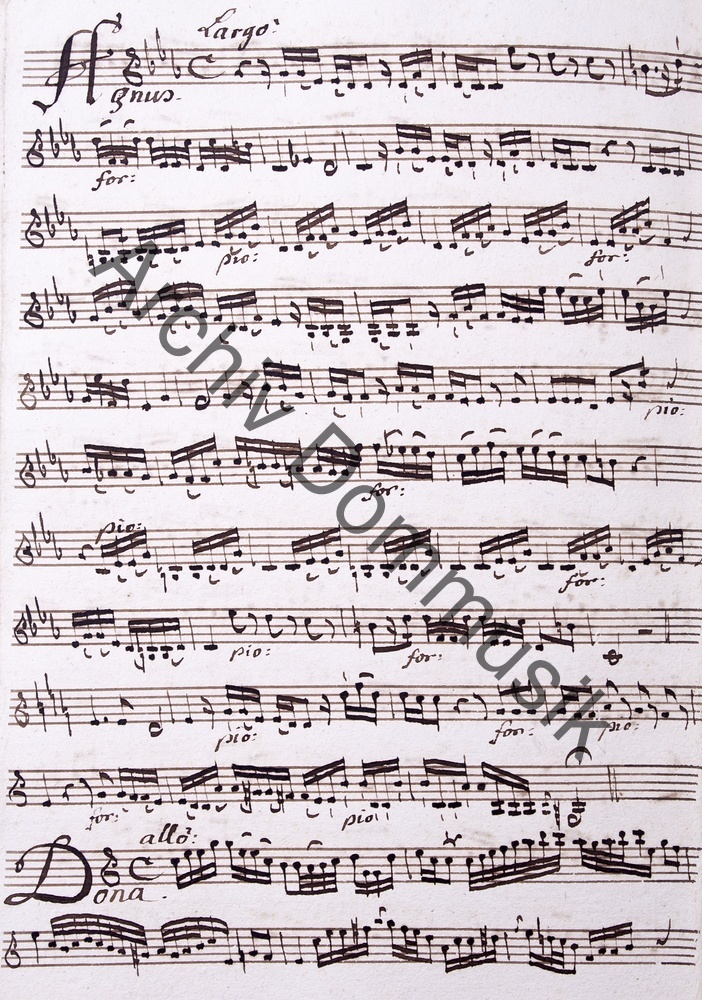 Largo:
Agnus.
for:
pio: for:
pio:
for:
pio:
for:
pio: for:
pio: for: pio:
for: pio:
allo:
Dona.
Archiv Dommusik